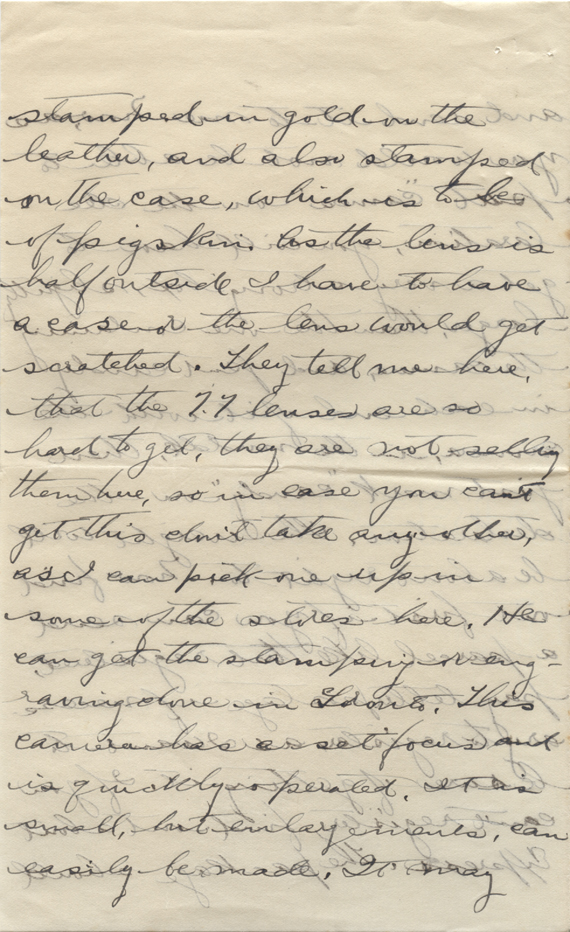 stamped in gold on the
leather, and also stamped
on the case, which is to be
of pigskin. As the lens is
half outside I have to have
a case or the lens would get
scratched. They tell me here,
that the 7.7 lenses are so
hard to get, they are not selling
them here, so "in case" you can't
get this don't take any other,
as I can pick one up in
some of the stores here. He
can get the stamping or eng-
raving done in This
camera has a set focus and
is quickly operated. It is
small, but enlargements, can
easily be made. It may